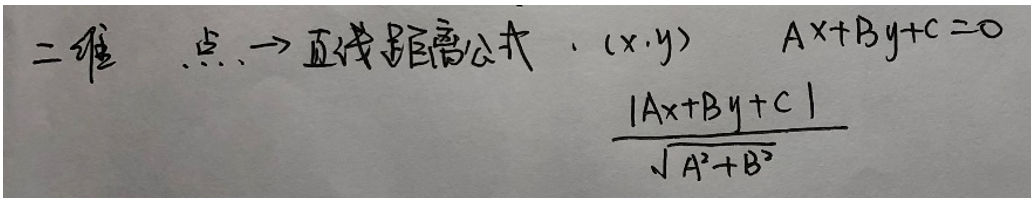 二维 点→直线距离公式 . (x.y) Ax+By+C=0
|Ax+By+C|
√A²+B²